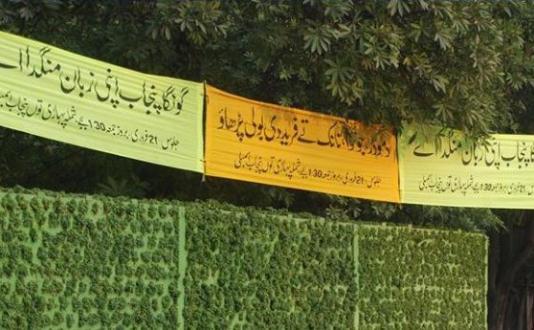 گونگا پنجاب اپنی زبان منگدا اے
جلوس ، 21 فروری، بروز جمعہ 1:30 بجے شملہ پہاڑی توں پنجاب اسمبلی
نانک تے فرید دی بولی پڑھاؤ
جلوس ، 21 فروری، بروز جمعہ 1:30 بجے شملہ پہاڑی توں پنجاب اسمبلی
پنجاب اپنی زبان منگدا اے
جلوس ، 21 فروری، بروز جمعہ 1:30 بجے شملہ پہاڑی توں پنجاب اسمبلی